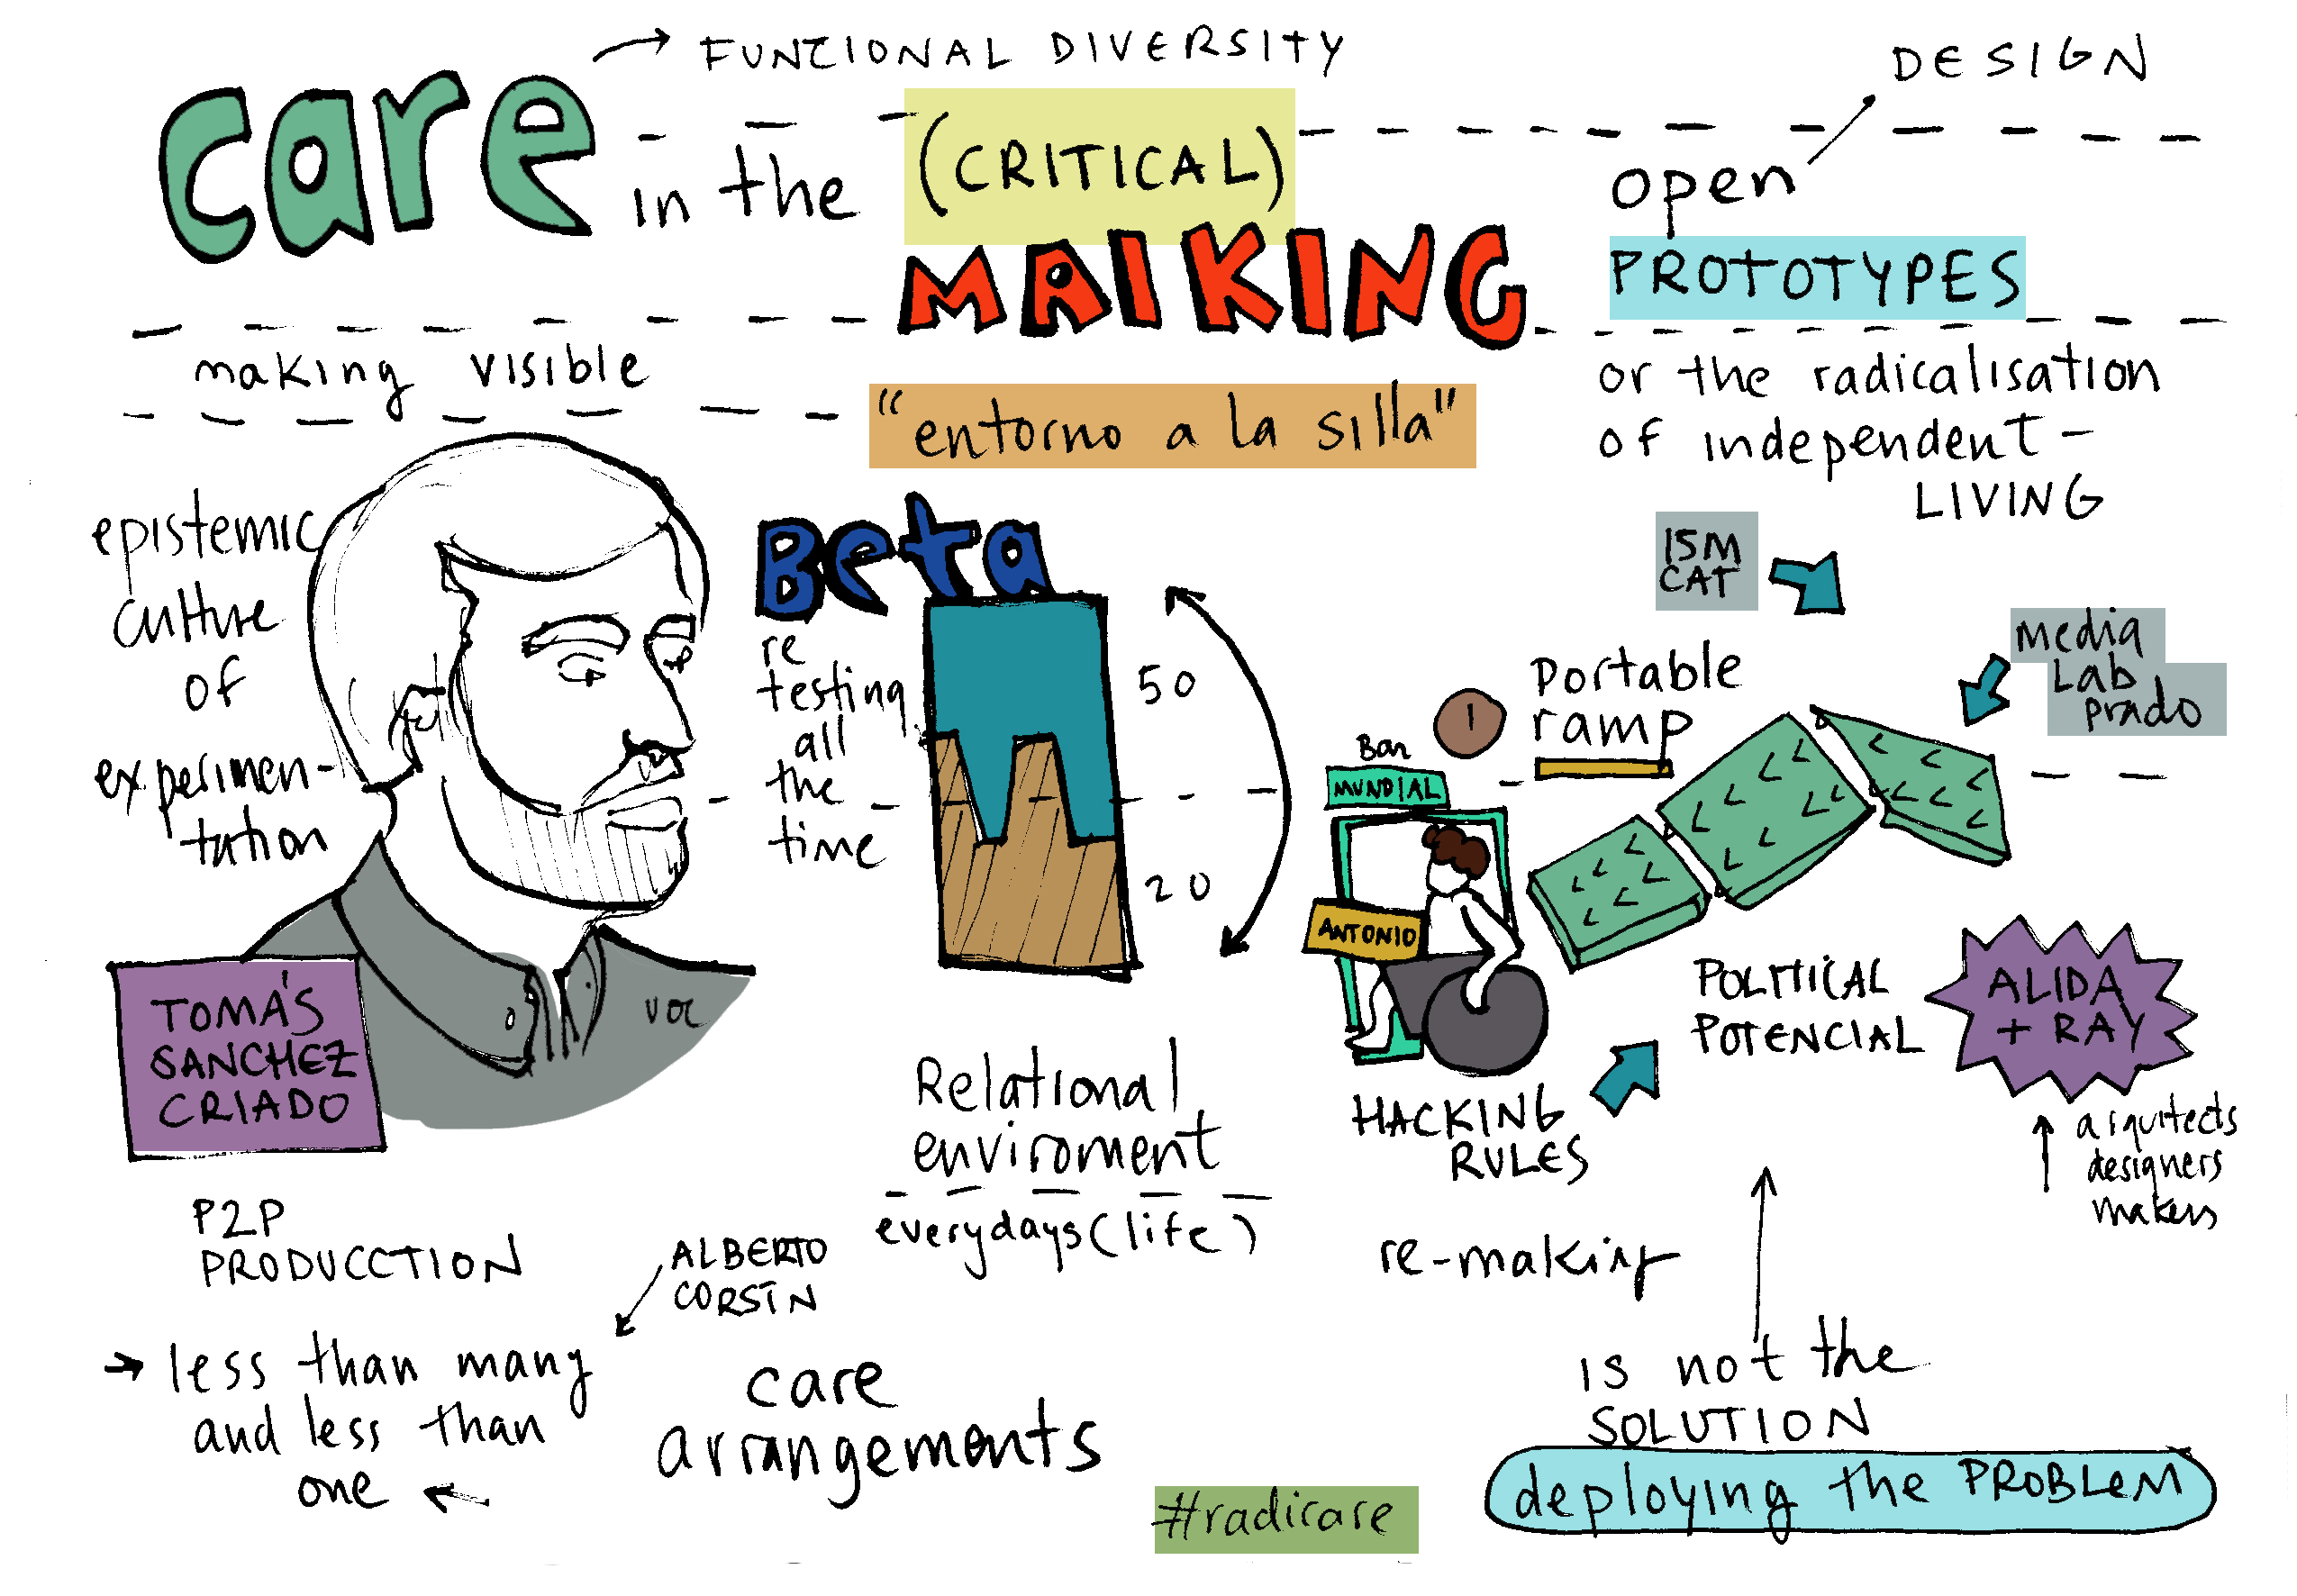 care
FUNCIONAL DIVERSITY
in the
(CRITICAL)
MAIKING
DESIGN
open
PROTOTYPES
or the radicalisation
of independent-
LIVING
making visible
"entorno a la silla"
epistemic
culture
of
experimen-
tation
TOMÁS
SANCHEZ
CRIADO
Beta
re
testing
all
the
time
50
20
15M
CAT
MEDIA
LAB
prado
Portable
ramp
1
Bar
MUNDIAL
ANTONIO
POLITICAL
POTENCIAL
ALIDA
+ RAY
arquitects
designers
makers
HACKING
RULES
Relational
enviroment
everydays (life)
P2P
PRODUCCTION
ALBERTO
CORSÍN
less than many
and less than
one
care
arrangements
re-making
is not the
SOLUTION
deploying the PROBLEM
#radicare